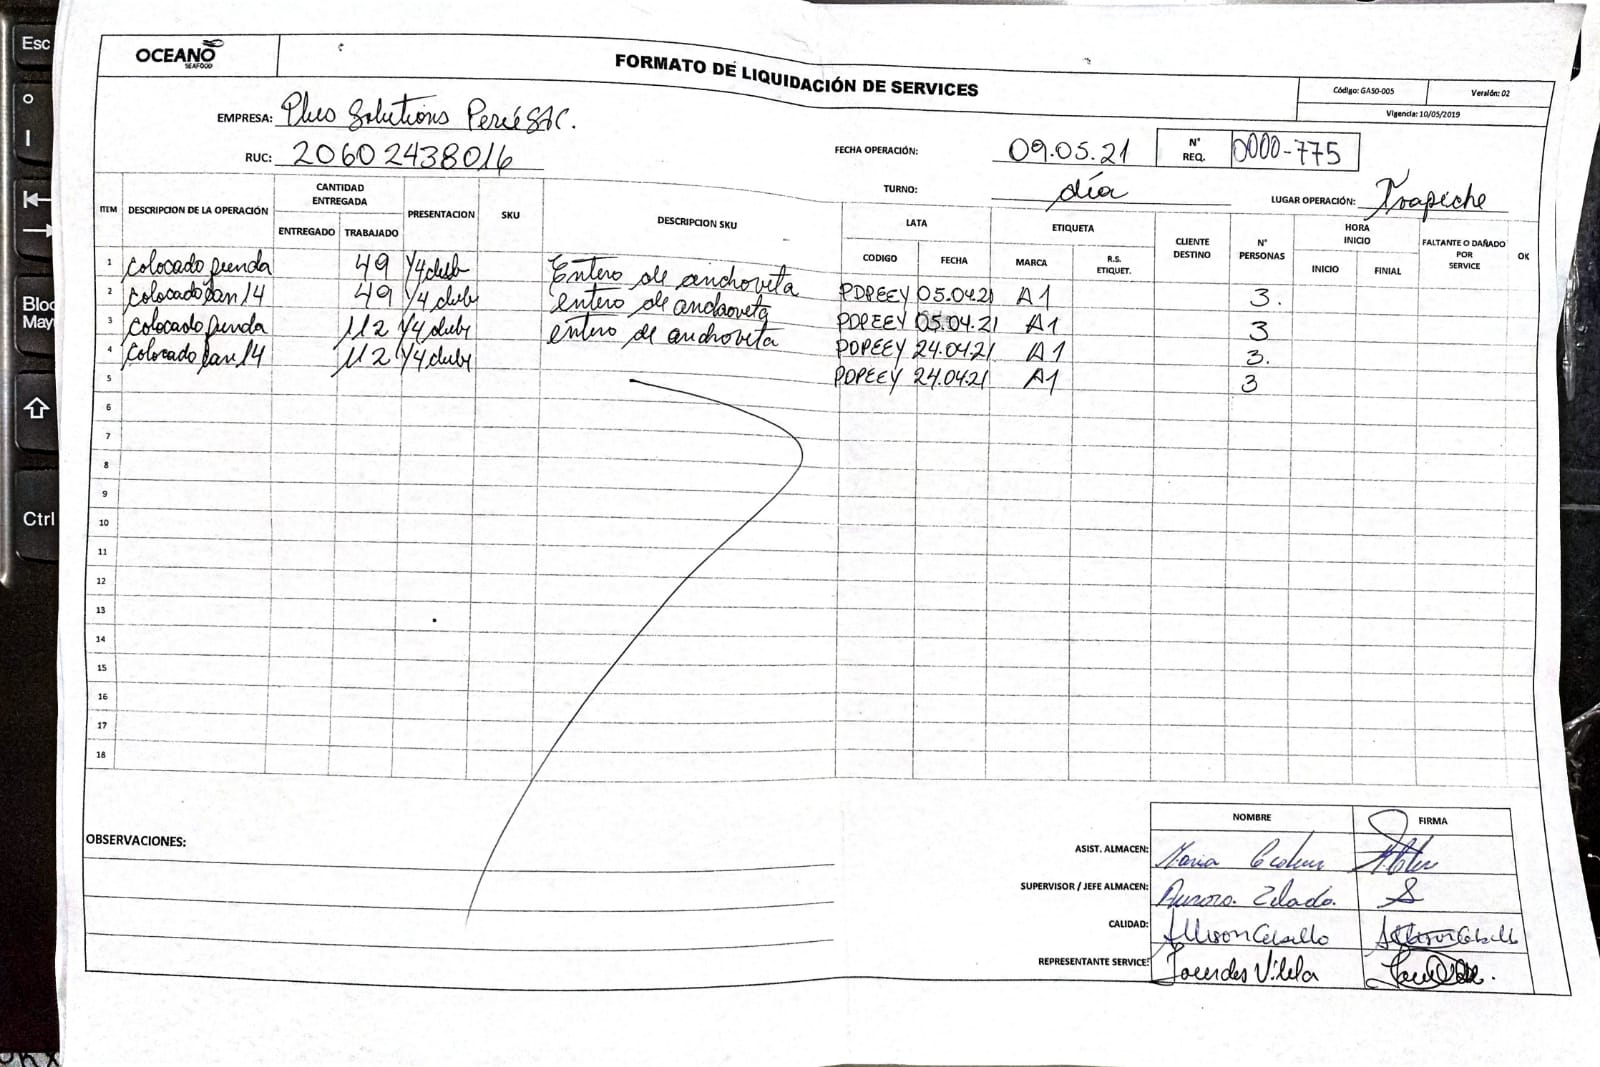 Esc
Bloq
May
Ctrl
OCEANO
SEAFOOD
FORMATO DE LIQUIDACIÓN DE SERVICES
Código: GASO-005
Versión: 02
Vigencia: 10/05/2019
EMPRESA: Plus Solutions Perú SAC.
RUC: 20602438016
FECHA OPERACIÓN: 09.05.21
N° REQ. 0000-775
TURNO: día
LUGAR OPERACIÓN: Trapiche
ITEM DESCRIPCION DE LA OPERACIÓN CANTIDAD ENTREGADA PRESENTACION SKU DESCRIPCION SKU LATA ETIQUETA CLIENTE DESTINO N° PERSONAS HORA INICIO FALTANTE O DAÑADO POR SERVICE OK
ENTREGADO TRABAJADO CODIGO FECHA MARCA R.S. ETIQUET. INICIO FINIAL
1 Colocado funda 49 1/4 club Entero de anchoveta PDPEEY 05.04.21 A1 3.
2 Colocado pan 14 49 1/4 club entero de anchoveta PDPEEY 05.04.21 A1 3
3 Colocado funda 112 1/4 club entero de anchoveta PDPEEY 24.04.21 A1 3.
4 Colocado pan 14 112 1/4 club PDPEEY 24.04.21 A1 3
5
6
7
8
9
10
11
12
13
14
15
16
17
18
OBSERVACIONES:
NOMBRE FIRMA
ASIST. ALMACEN: Maria
SUPERVISOR / JEFE ALMACEN: Aurora. Zelada.
CALIDAD: Allison Ceballo
REPRESENTANTE SERVICE: Lourdes Vilela